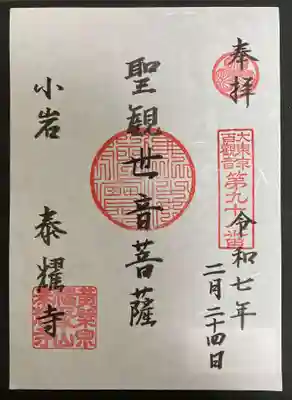 奉拝
大東京百観音
第九十番
令和七年
二月二十四日
聖観世音菩薩
小岩 泰耀寺